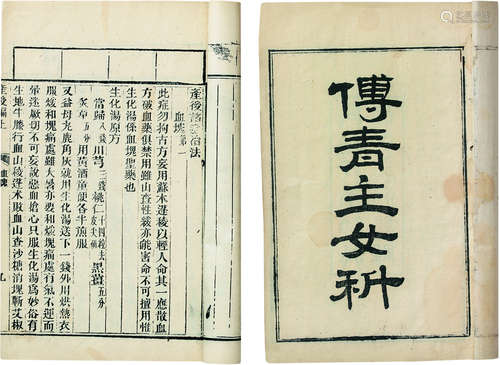 傅青主女科
產後諸症治法
血塊第一
此症勿拘古方妄用蘇木蓬稜以輕人命其一應散血
方破血藥俱禁用雖山查性緩亦能害命不可擅用惟
生化湯係血塊聖藥也
生化湯原方
當歸八錢 川芎三錢 桃仁十四粒去皮尖 黑薑五分
炙草五分 用黃酒童便各半煎服
又益母丸鹿角灰就用生化湯送下一錢外用烘熱衣
服煖和塊痛處雖大暑亦要和煖塊痛處有氣不運而
暈迷厥切不可妄說惡血搶心只服生化湯為妙俗有
生地牛膝行血山稜蓬朮敗血山查沙糖消塊蘄艾椒
產後編上
九